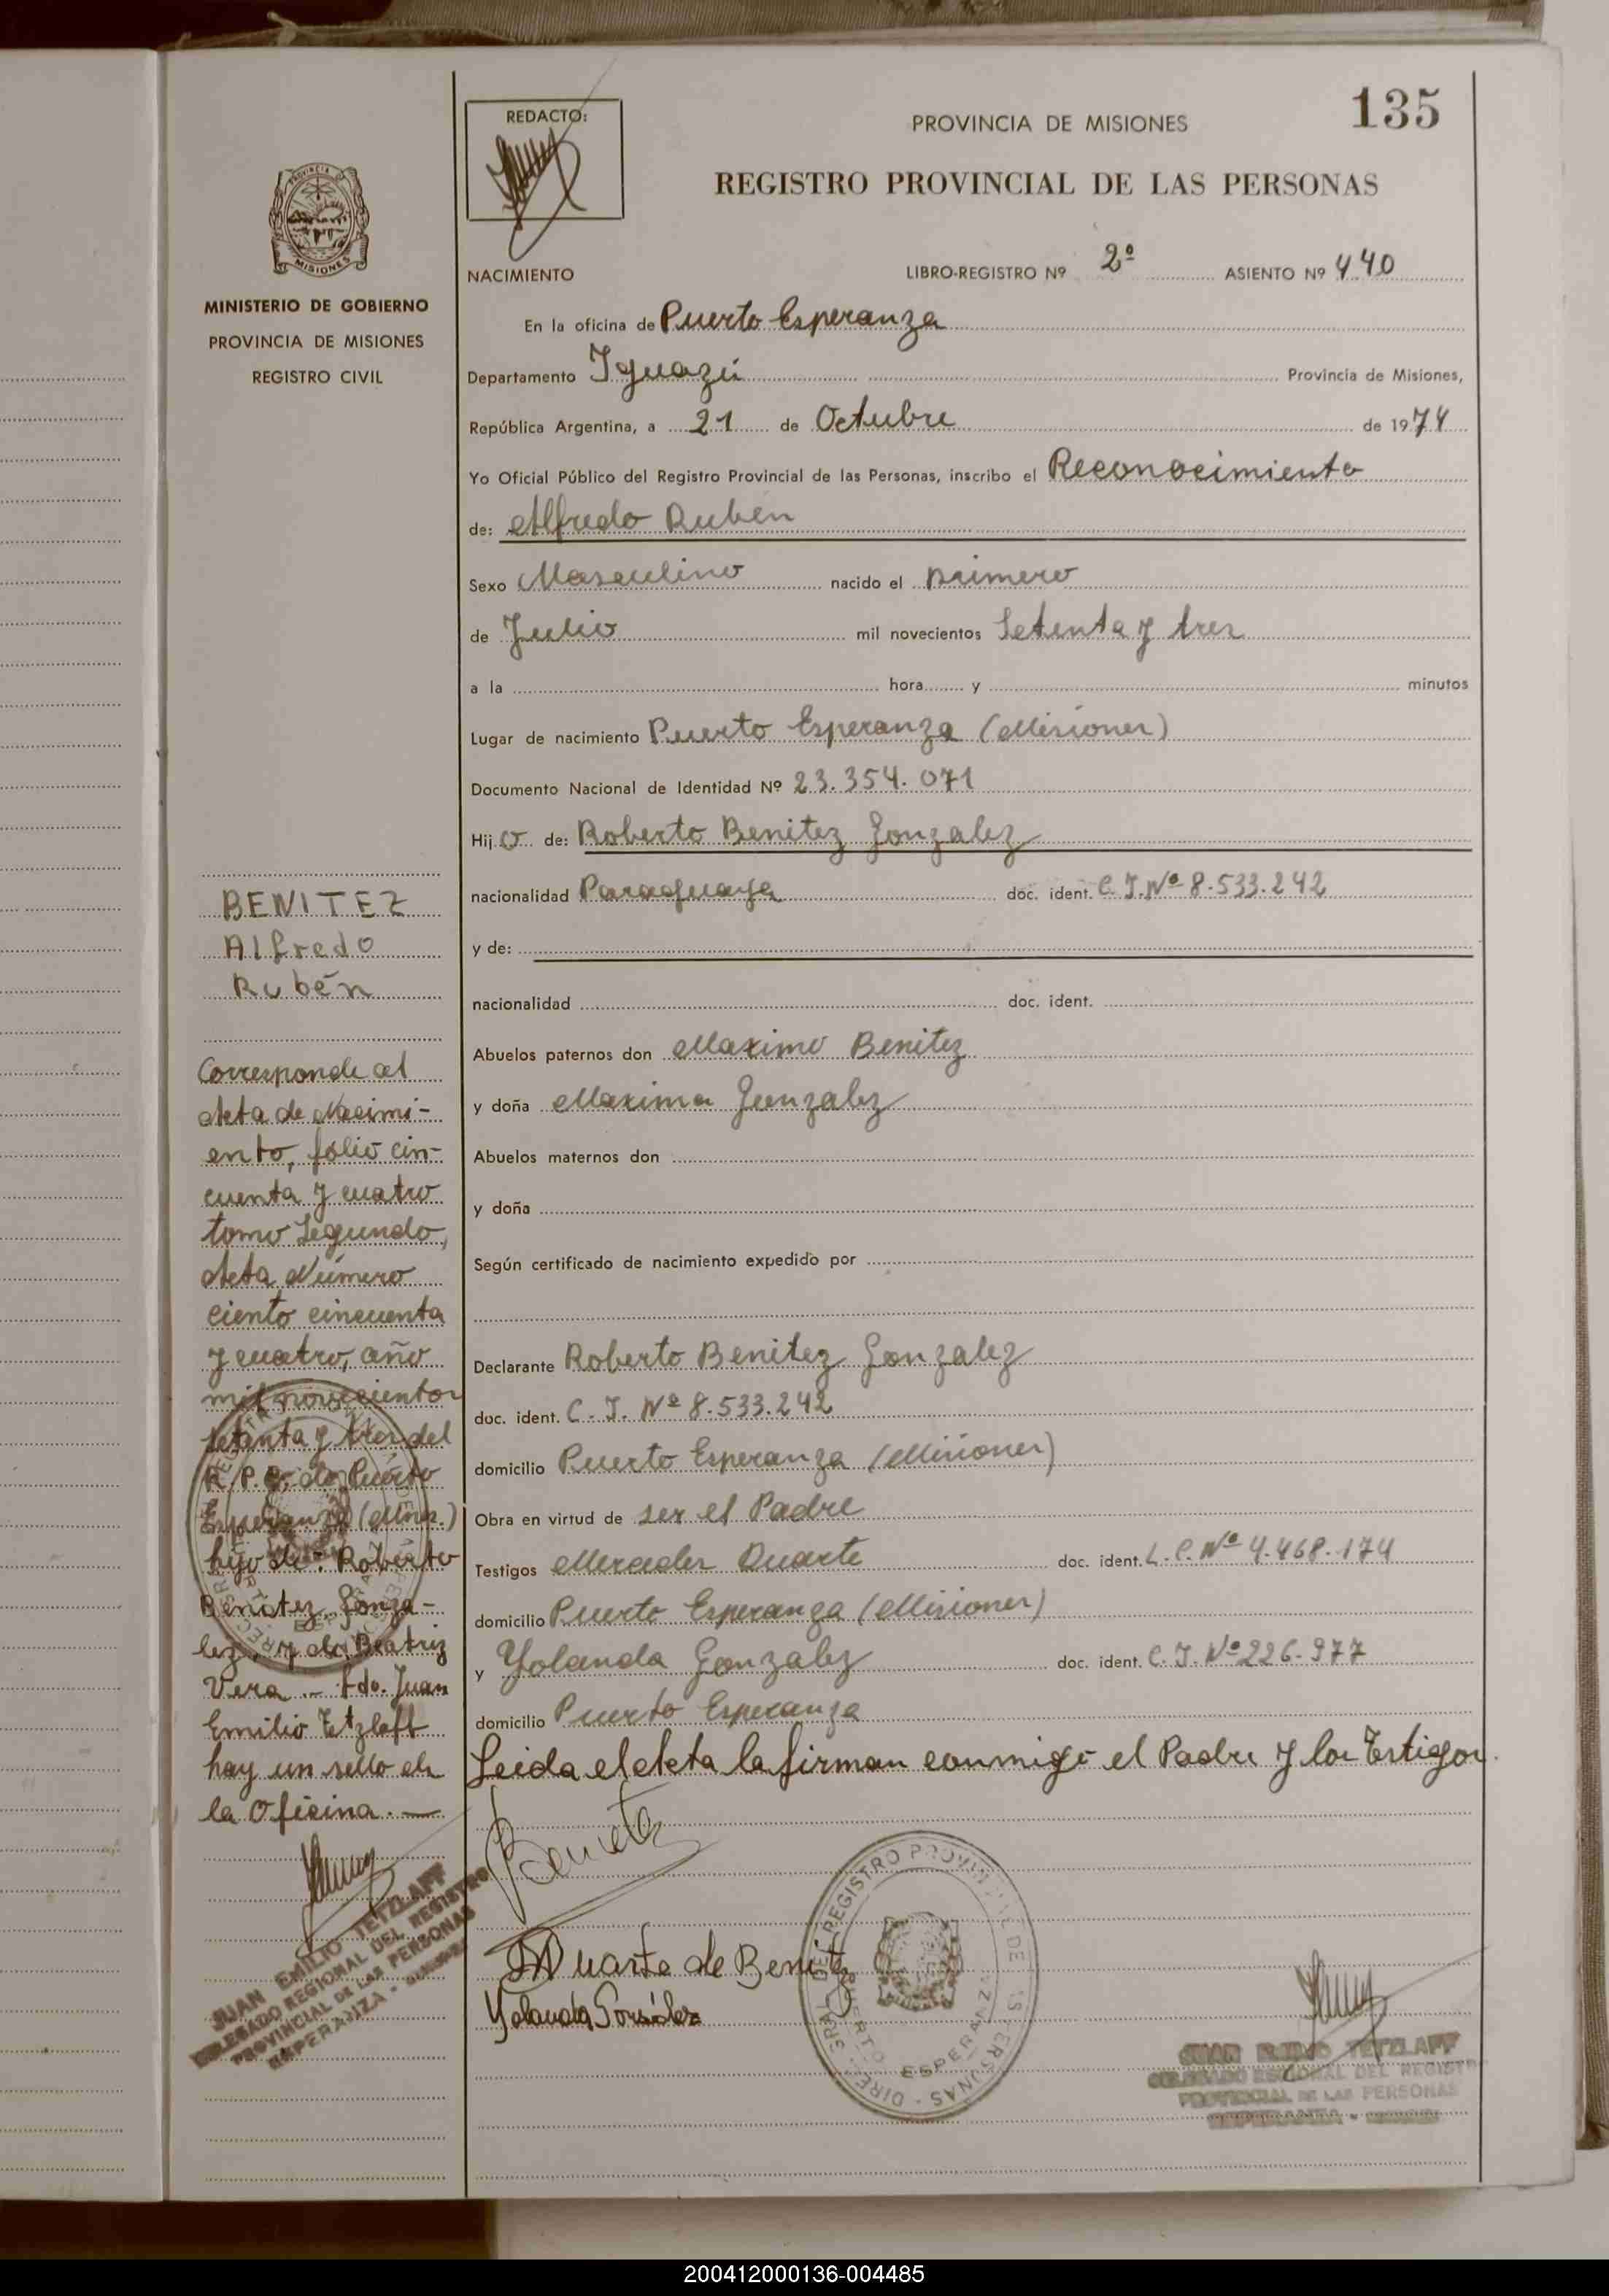 135
REDACTO:
PROVINCIA DE MISIONES
REGISTRO PROVINCIAL DE LAS PERSONAS
NACIMIENTO
LIBRO-REGISTRO Nº 2º ASIENTO Nº 440
En la oficina de Puerto Esperanza
Departamento Iguazú Provincia de Misiones,
República Argentina, a 21 de Octubre de 1974
Yo Oficial Público del Registro Provincial de las Personas, inscribo el Reconocimiento
de: Alfredo Rubén
Sexo Masculino nacido el primero
de Julio mil novecientos Setenta y tres
a la hora y minutos
Lugar de nacimiento Puerto Esperanza (Misiones)
Documento Nacional de Identidad Nº 23.354.071
Hijo de: Roberto Benitez Gonzalez
nacionalidad Paraguaya doc. ident. C.I.Nº 8.533.242
y de:
nacionalidad doc. ident.
Abuelos paternos don Maximo Benitez
y doña Maxima Gonzalez
Abuelos maternos don
y doña
Según certificado de nacimiento expedido por
Declarante Roberto Benitez Gonzalez
doc. ident. C. I. Nº 8.533.242
domicilio Puerto Esperanza (Misiones)
Obra en virtud de ser el Padre
Testigos Mercedes Duarte doc. ident. L.C. Nº 4.468.174
domicilio Puerto Esperanza (Misiones)
y Yolanda Gonzalez doc. ident. C. I. Nº 226.977
domicilio Puerto Esperanza
Leida el Acta la firman conmigo el Padre y los Testigos.
M Duarte de Benitez
Yolanda González
DIREC. GRAL. DEL REGISTRO PROVINCIAL DE LAS PERSONAS
PUERTO ESPERANZA
JUAN EMILIO TETZLAFF
DELEGADO REGIONAL DEL REGISTRO
PROVINCIAL DE LAS PERSONAS
ESPERANZA - MISIONES
PROVINCIA
MISIONES
MINISTERIO DE GOBIERNO
PROVINCIA DE MISIONES
REGISTRO CIVIL
BENITEZ
Alfredo
Rubén
Corresponde al
Acta de Nacimi-
ento, folio cin-
cuenta y cuatro
tomo Segundo,
Acta Número
ciento cincuenta
y cuatro, año
mil novecientos
setenta y tres del
R.P.P. de Puerto
Esperanza (Mnes.)
hijo de: Roberto
Benitez Gonza-
lez y de Beatriz
Vera.- Fdo. Juan
Emilio Tetzlaff
hay un sello de
la Oficina.—
JUAN EMILIO TETZLAFF
DELEGADO REGIONAL DEL REGISTRO
PROVINCIAL DE LAS PERSONAS
ESPERANZA - MISIONES
200412000136-004485